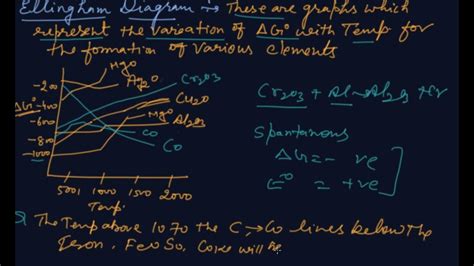 Ellingham Diagram :→ These are graphs which
represent the variation of ΔG° with Temp for
the formation of various elements
HgO
Ag2O
Cr2O3
-200
ΔG° -400
Cu2O
-600
MgO
Al2O3
-800
CO
-1000
CO
500 1000 1500 2000
Temp.
Cr2O3 + Al → Al2O3 +
Spantanous
ΔG = - ve
E° = +ve
The Temp above 1070 the C, → Co lines below the
Iron, FeO So, Coke will be